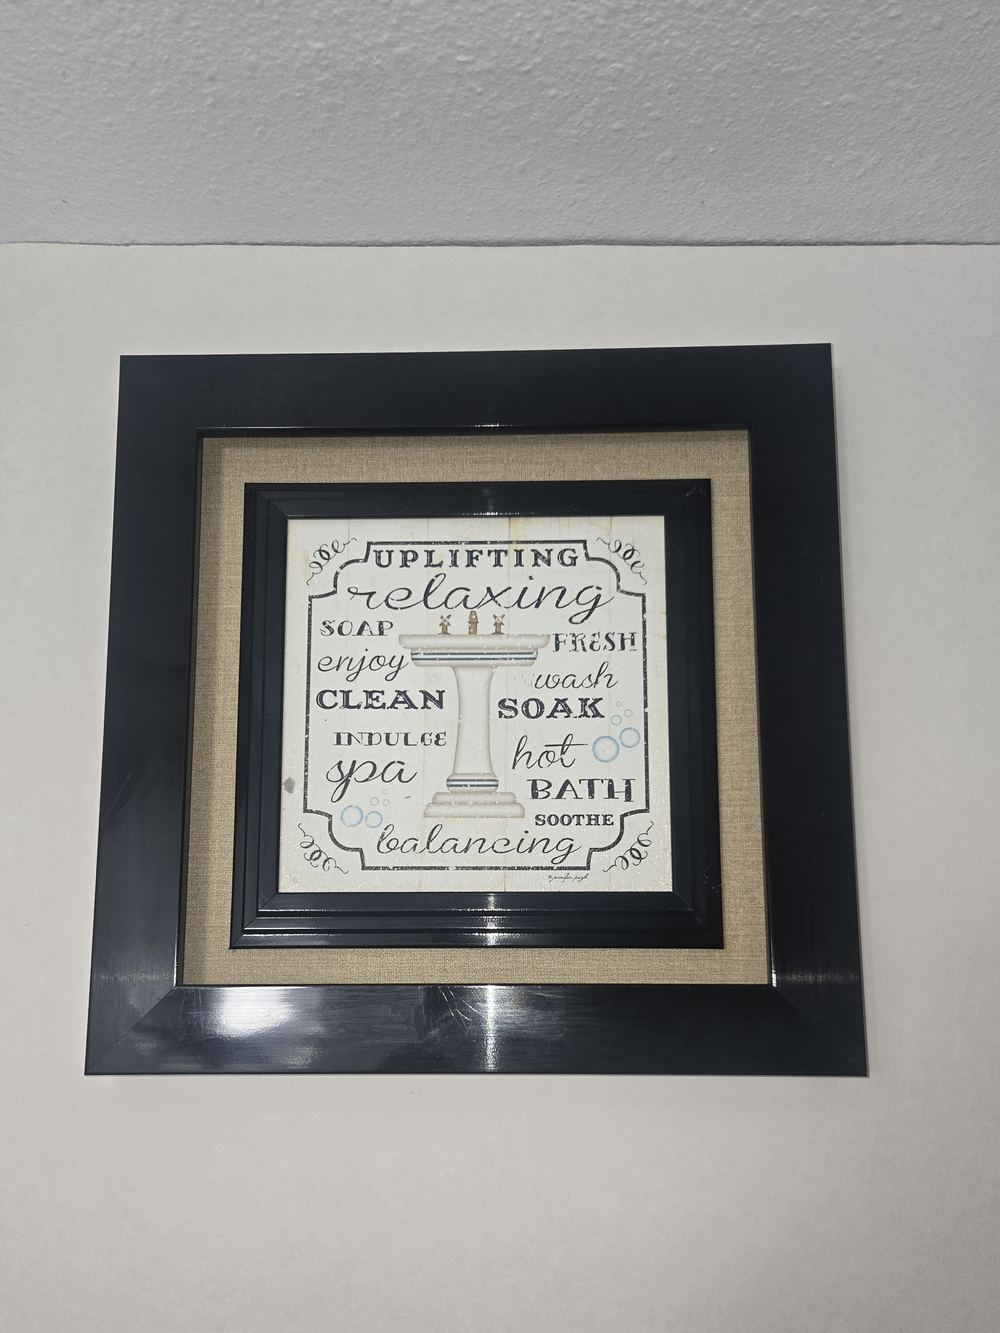 UPLIFTING
relaxing
SOAP
FRESH
enjoy
wash
CLEAN
SOAK
INDULGE
hot
spa
BATH
SOOTHE
balancing
© jennifer pugh